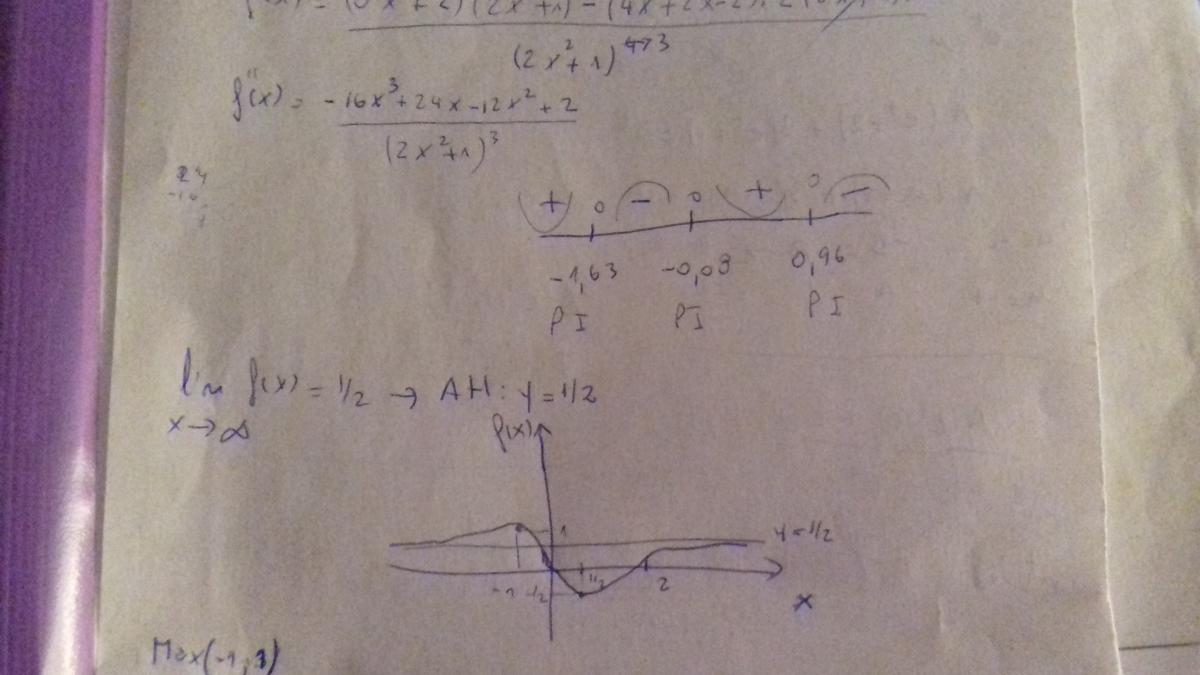 (2x²+1)^4→3
f''(x) = -16x³+24x-12x²+2
(2x²+1)³
24
+ 0 - 0 + 0 -
-1,63 -0,08 0,96
PI PI PI
lim f(x) = 1/2 → AH: y = 1/2
x→∞
f(x)
1
y = 1/2
-1 -1/2 1/2 2
x
Max(-1, 1)